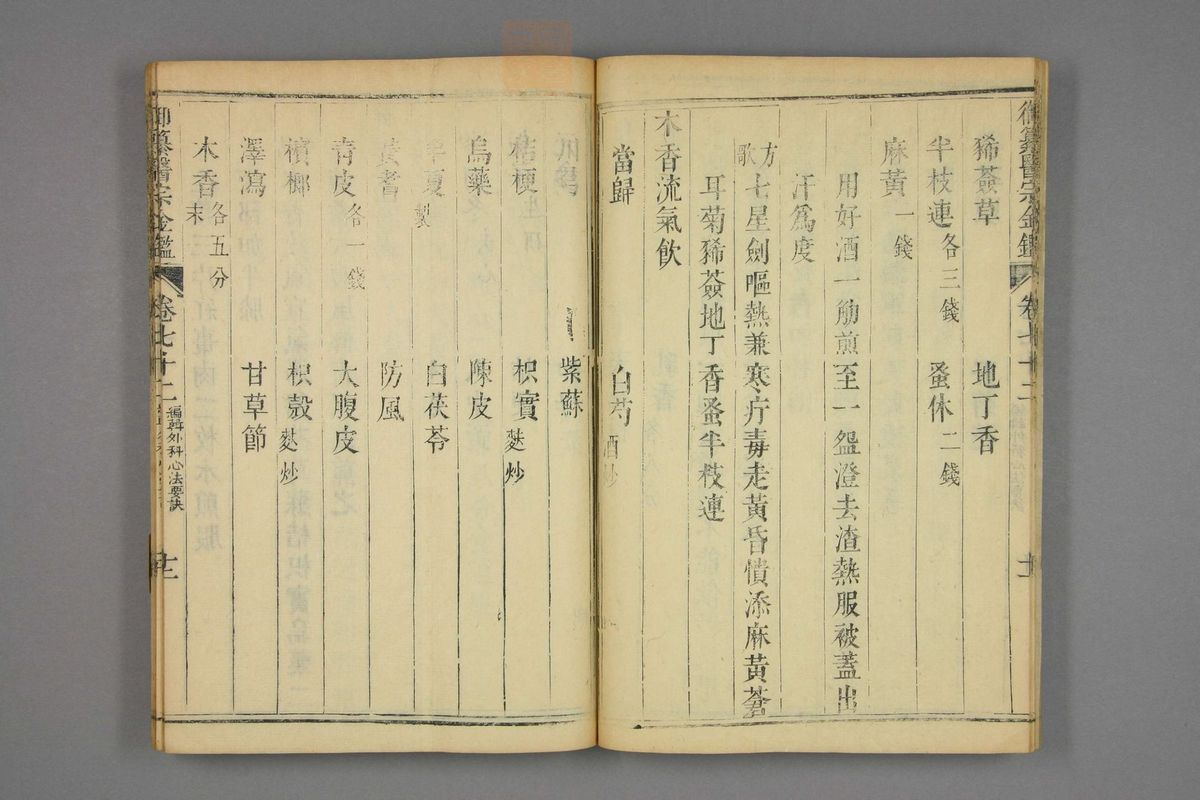 御纂醫宗金鑑 卷七十二 十一
豨薟草 地丁香
半枝連各三錢 蚤休二錢
麻黃一錢
用好酒一觔煎至一盌澄去渣熱服被蓋出
汗爲度
方歌 七星劍嘔熱兼寒疔毒走黃昏憒添麻黃蒼
耳菊豨薟地丁香蚤半枝連
木香流氣飲
當歸 白芍酒炒
川芎 紫蘇
桔梗 枳實麩炒
烏藥 陳皮
半夏製 白茯苓
黃耆 防風
青皮各一錢 大腹皮
檳榔 枳殼麩炒
澤瀉 甘草節
木香末各五分
御纂醫宗金鑑 卷七十二 編輯外科心法要訣 十二